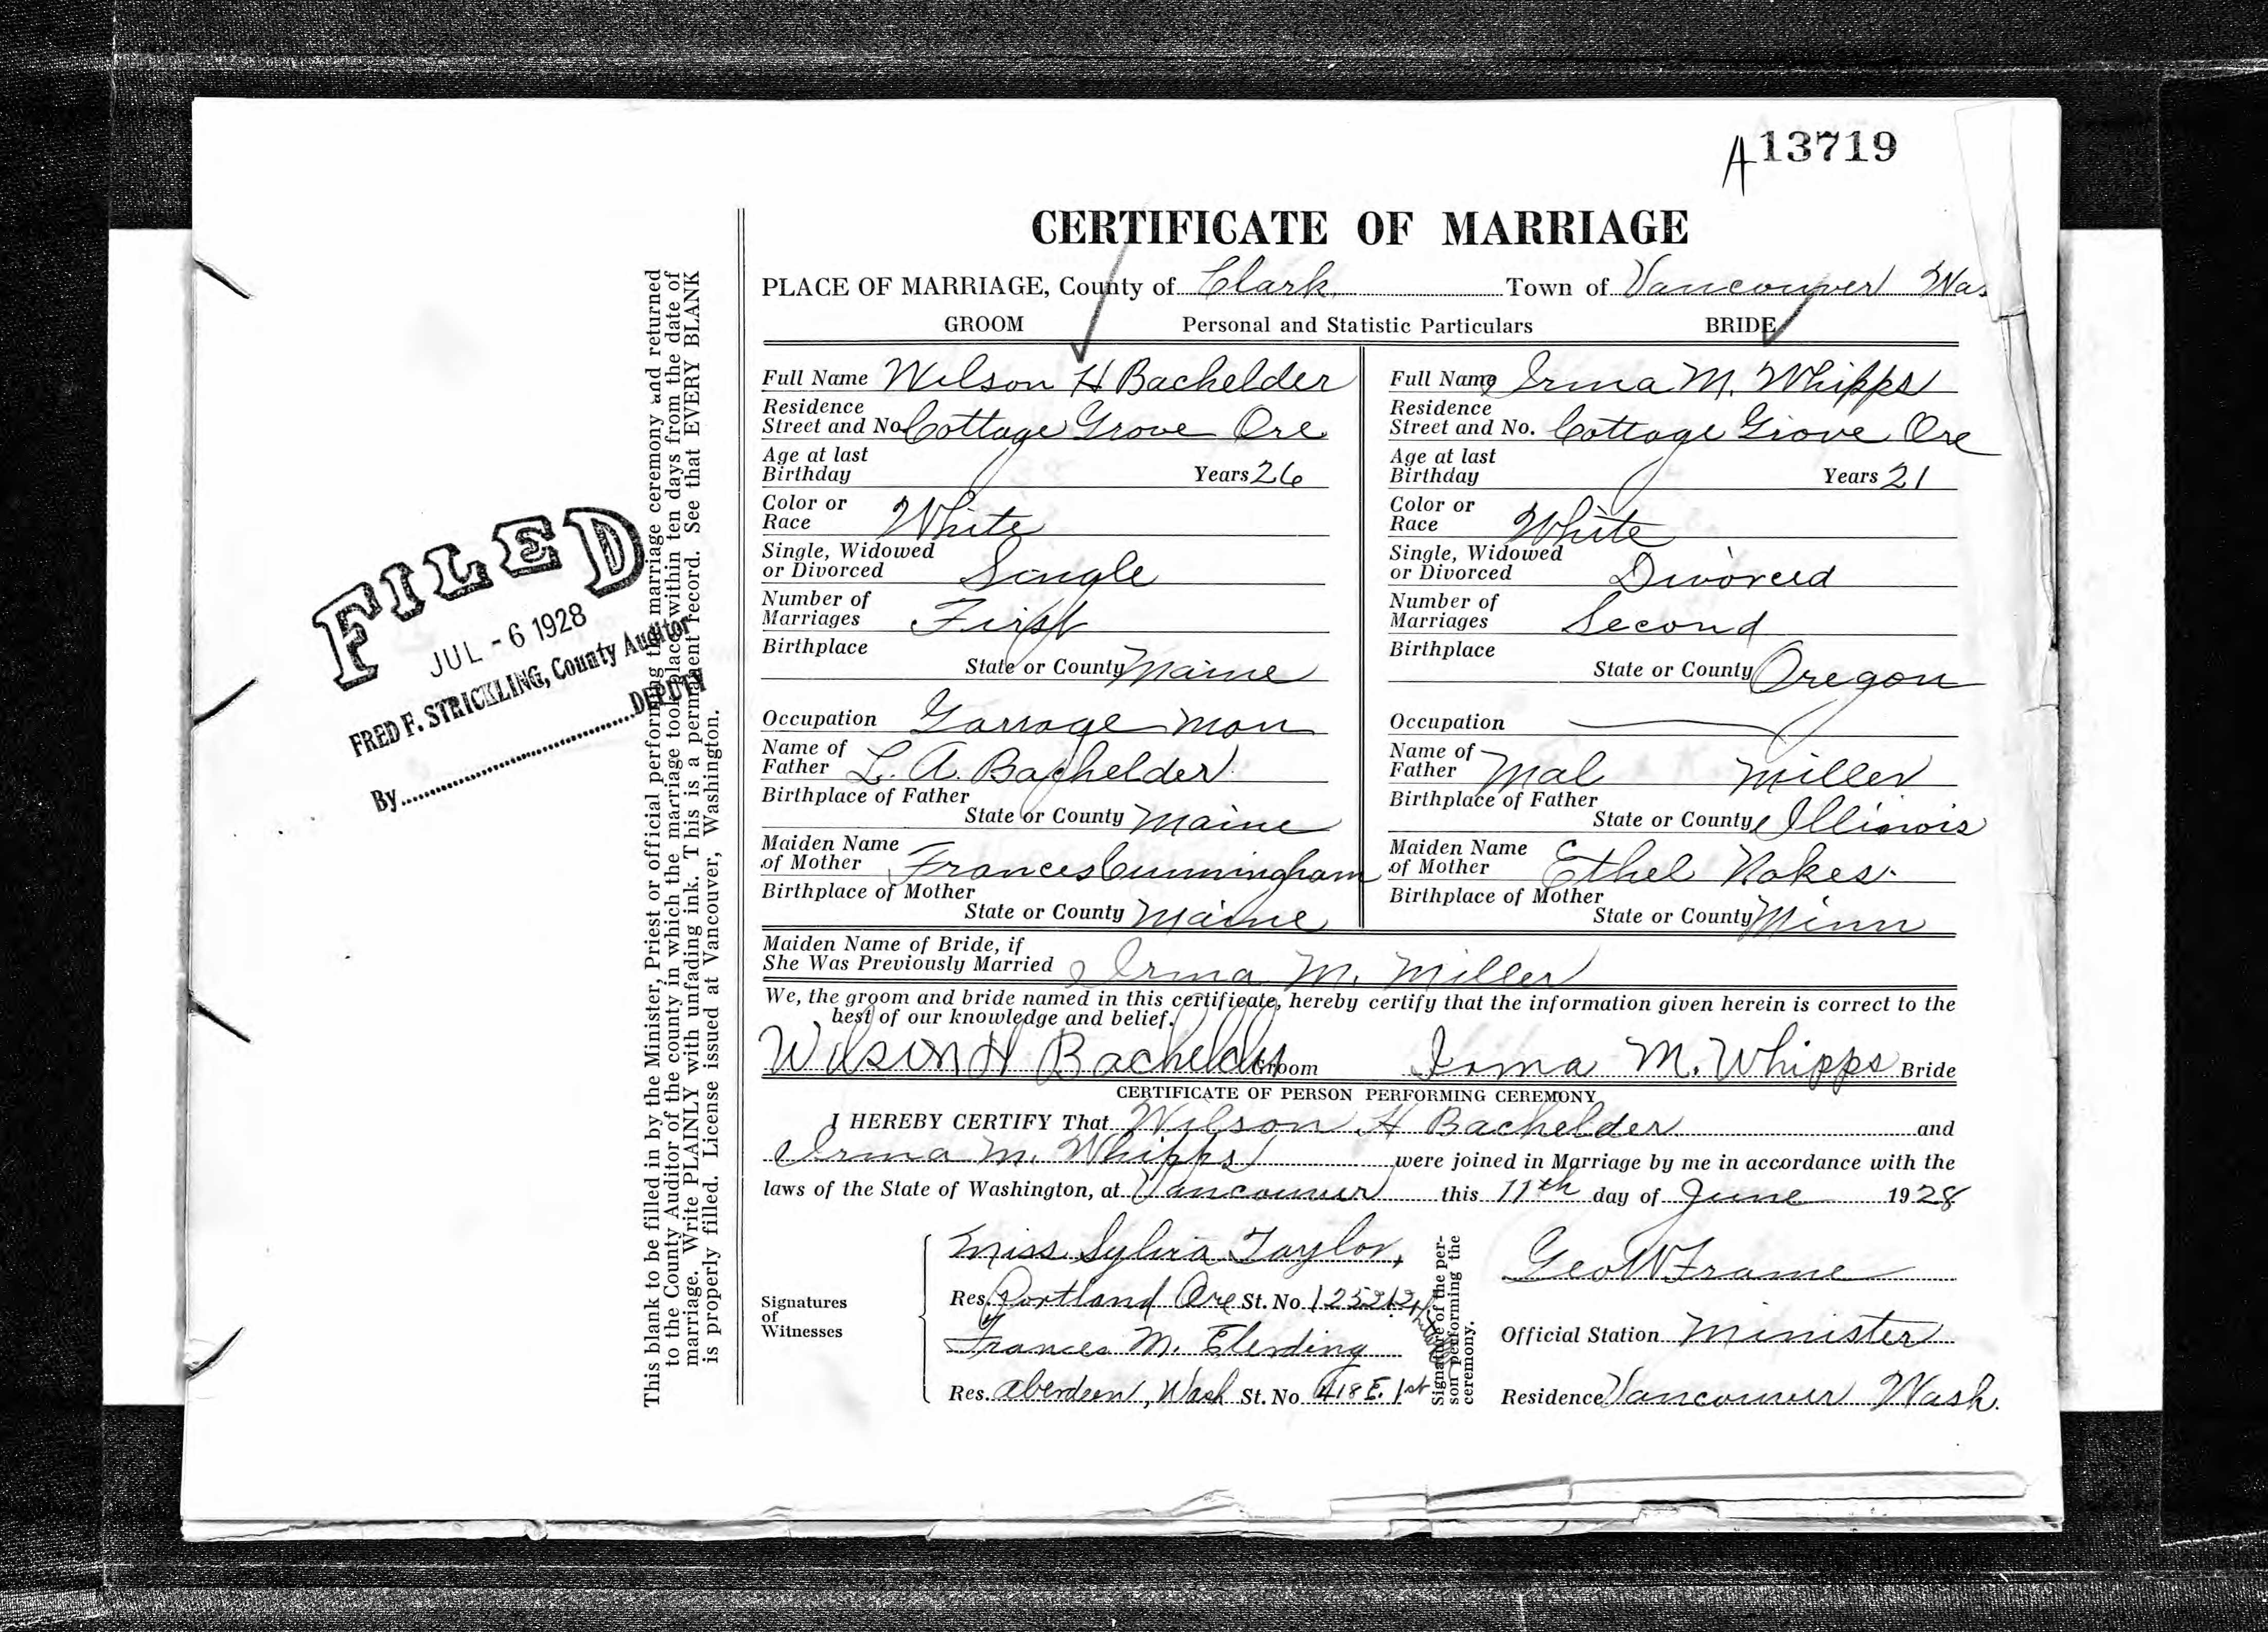 A13719
CERTIFICATE OF MARRIAGE
PLACE OF MARRIAGE, County of Clark Town of Vancouver Wa.
GROOM Personal and Statistic Particulars BRIDE
Full Name Wilson H Bachelder
Residence
Street and No. Cottage Grove Ore
Age at last
Birthday Years 26
Color or
Race White
Single, Widowed
or Divorced Single
Number of
Marriages First
Birthplace
State or County Maine
Occupation Garrage man
Name of
Father L. A. Bachelder
Birthplace of Father
State or County Maine
Maiden Name
of Mother Frances Cunningham
Birthplace of Mother
State or County Maine
Full Name Irma M. Whipps
Residence
Street and No. Cottage Grove Ore
Age at last
Birthday Years 21
Color or
Race White
Single, Widowed
or Divorced Divorced
Number of
Marriages Second
Birthplace
State or County Oregon
Occupation
Name of
Father Mal Miller
Birthplace of Father
State or County Illinois
Maiden Name
of Mother Ethel Nokes.
Birthplace of Mother
State or County Minn
Maiden Name of Bride, if
She Was Previously Married Irma M. Miller
We, the groom and bride named in this certificate, hereby certify that the information given herein is correct to the
best of our knowledge and belief.
Wilson H Bachelder Groom Irma M. Whipps Bride
CERTIFICATE OF PERSON PERFORMING CEREMONY
I HEREBY CERTIFY That Wilson H Bachelder and
Irma M. Whipps were joined in Marriage by me in accordance with the
laws of the State of Washington, at Vancouver this 11th day of June 1928
Signatures
of
Witnesses
Miss Sylvia Taylor,
Res. Portland Ore St. No.
Frances M. Elerding
Res. Aberdeen, Wash St. No. 418 E. 1st
Signature of the per-
son performing the
ceremony.
Geo W Frame
Official Station Minister
Residence Vancouver Wash.
This blank to be filled in by the Minister, Priest or official performing the marriage ceremony and returned
to the County Auditor of the county in which the marriage took place within ten days from the date of
marriage. Write PLAINLY with unfading ink. This is a permanent record. See that EVERY BLANK
is properly filled. License issued at Vancouver, Washington.
FILED
JUL - 6 1928
FRED F. STRICKLING, County Auditor
By DEPUTY